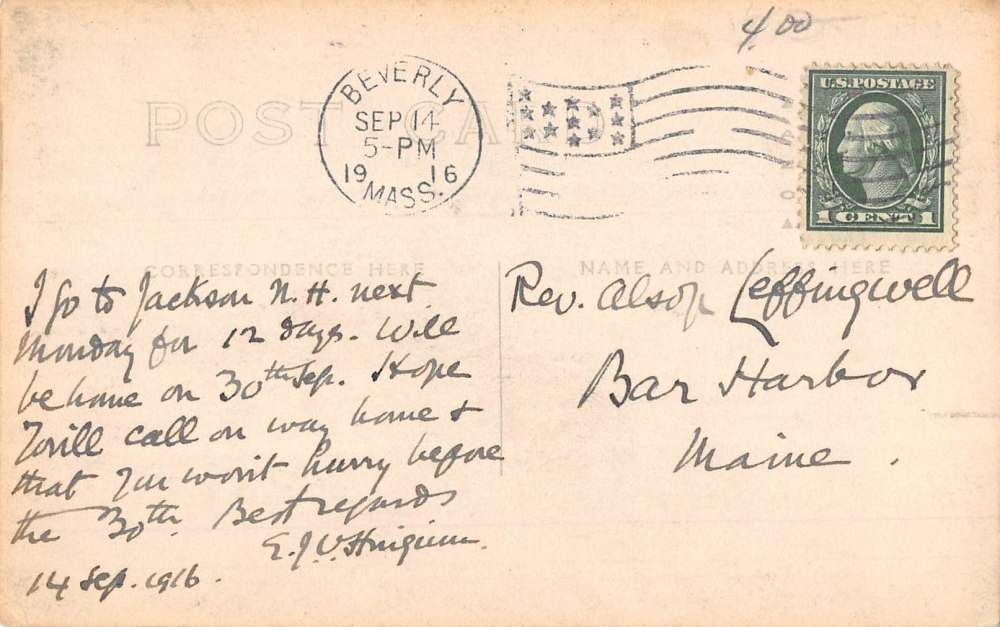 4.00
BEVERLY
SEP 14
5-PM
19 16
MASS.
U.S. POSTAGE
1 CENT 1
POST CA
CORRESPONDENCE HERE
NAME AND ADDRESS HERE
I go to Jackson N.H. next
Monday for 12 days. Will
be home on 30th Sep. Hope
will call on way home &
that you won't hurry before
the 30th. Best regards
E.J.V.
14 Sep. 1916.
Rev. Alsop Leffingwell
Bar Harbor
Maine.